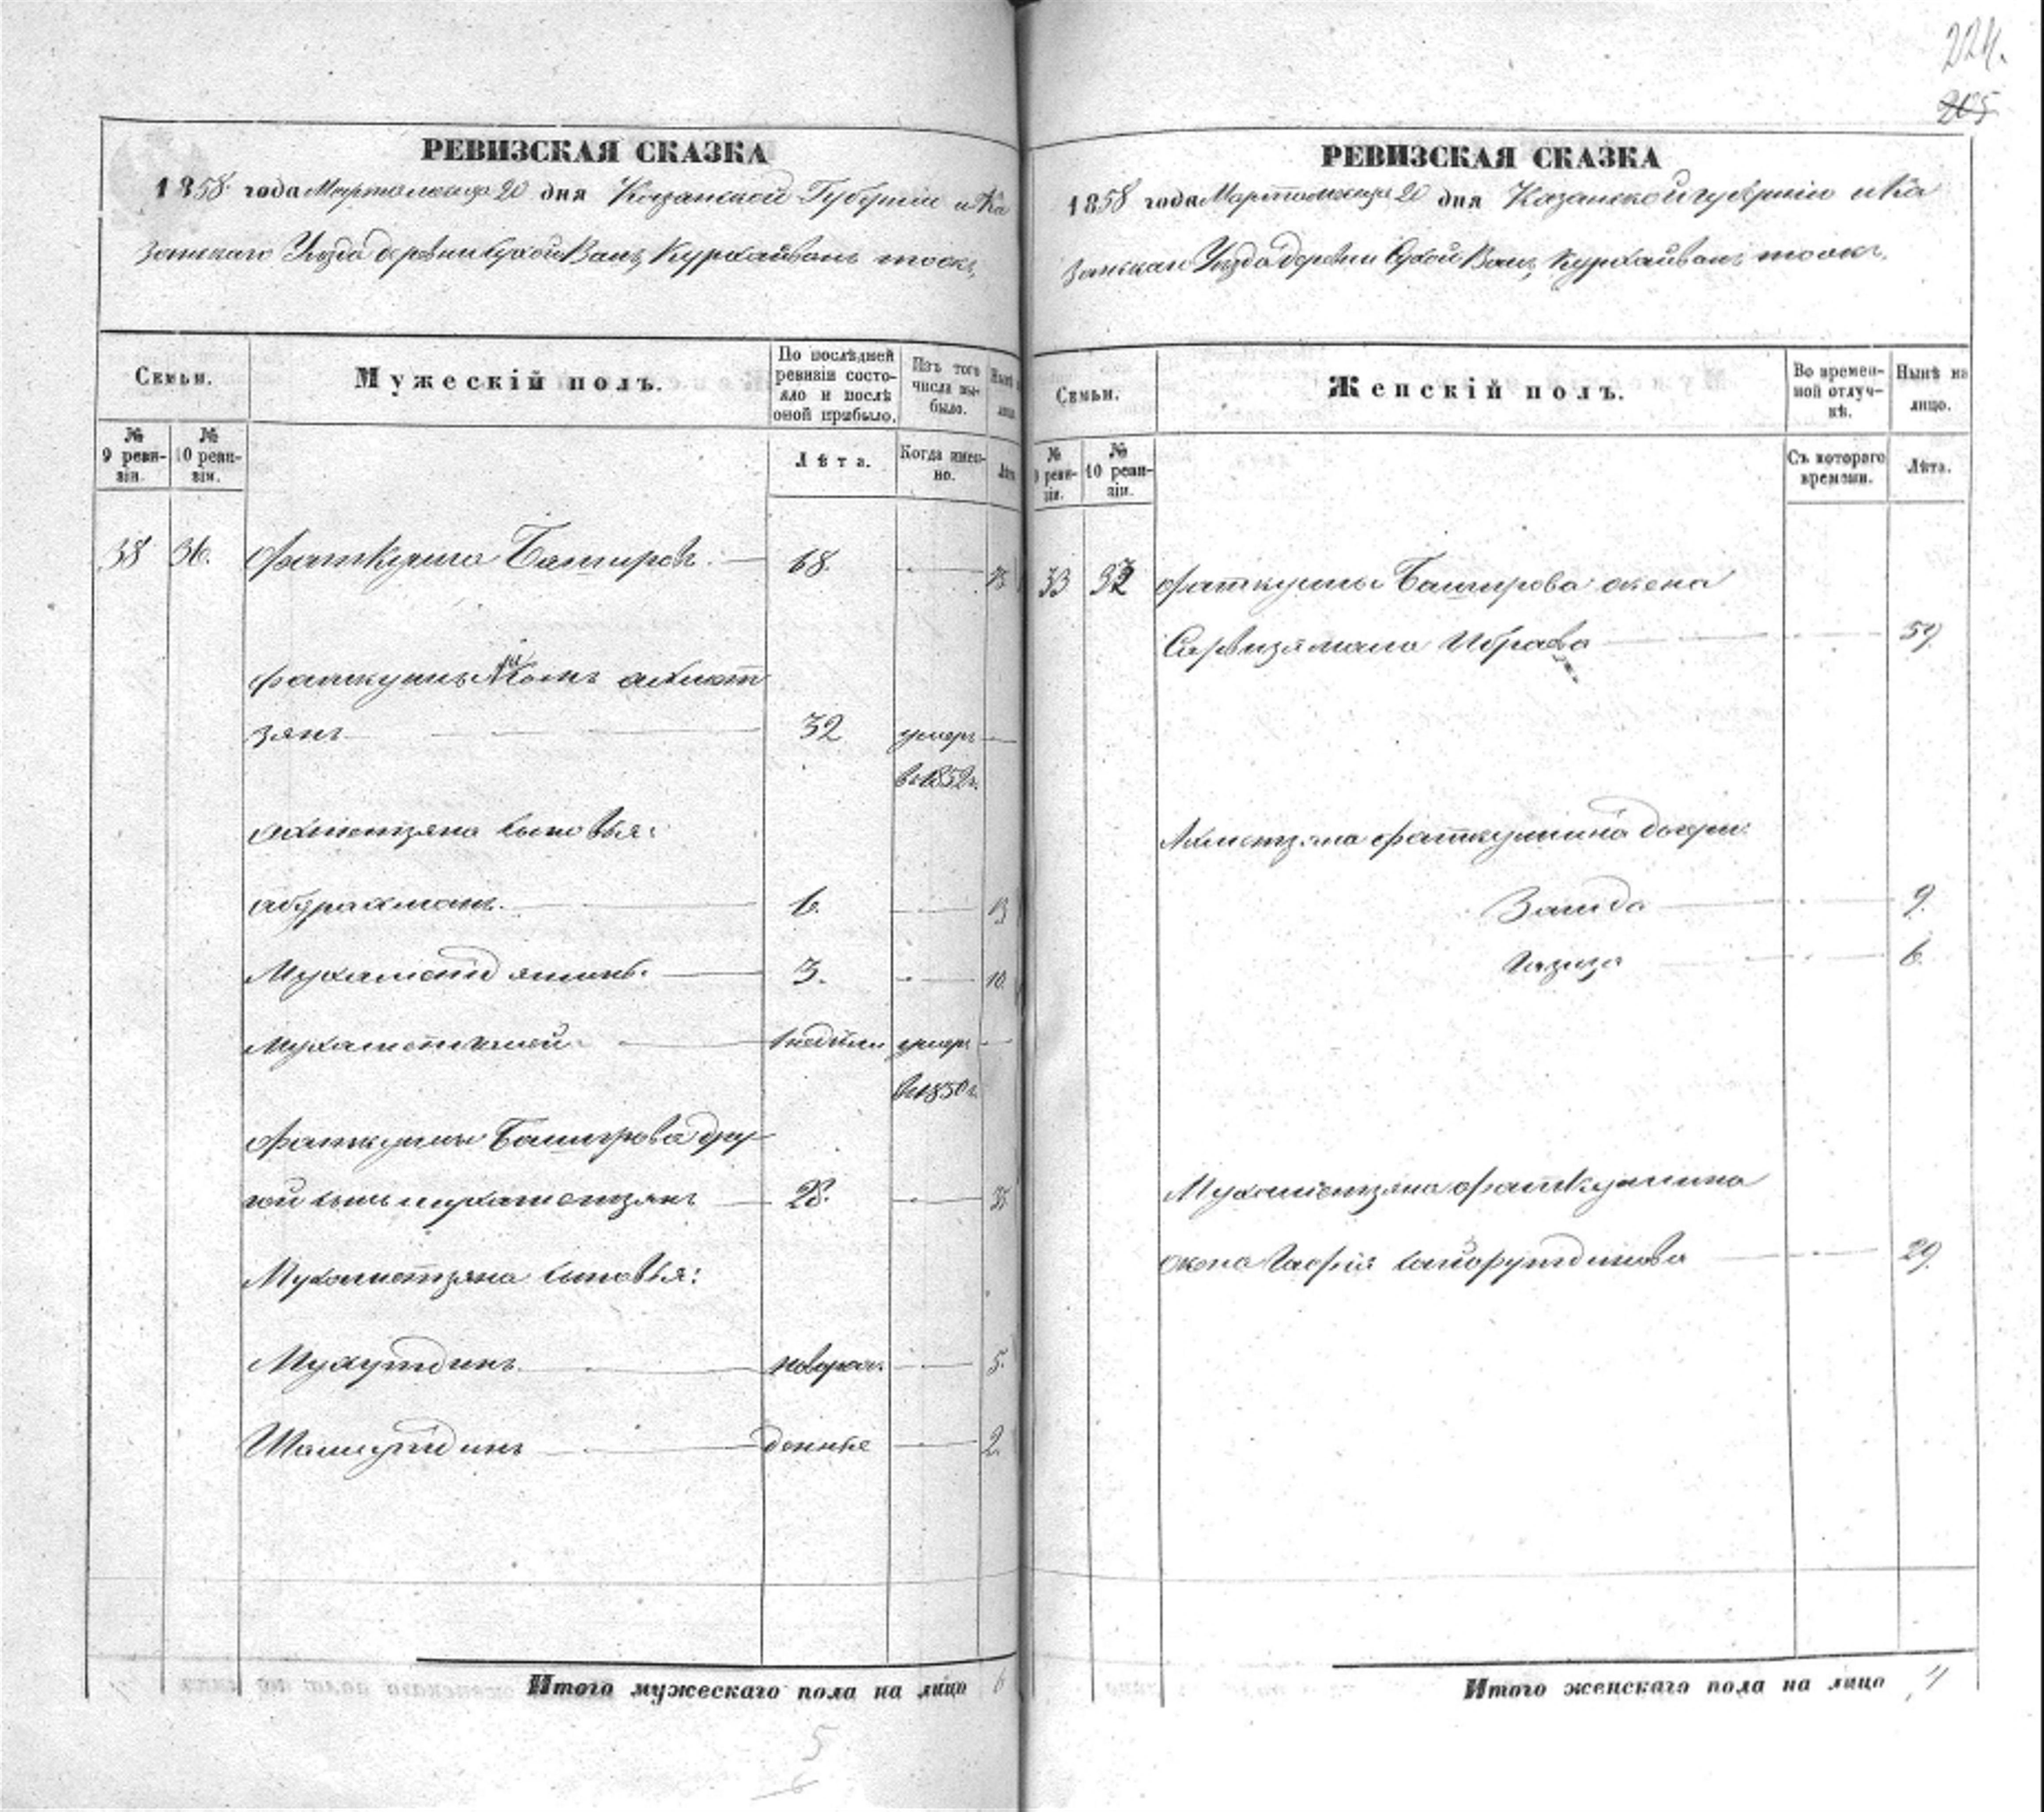 224.
205
РЕВИЗСКАЯ СКАЗКА
1858 года Марта месяца 20 дня Казанской Губернiи и Ка
занскаго Уѣзда деревни Сухой Ванъ, Куркайванъ тожъ,
Семьи.
Мужескiй полъ.
По послѣдней ревизiи состояло и послѣ оной прибыло.
Изъ того числа выбыло.
Нынѣ
лицо.
№ 9 ревизiи.
№ 10 ревизiи.
Лѣта.
Когда именно.
Лѣта
38 36. Фаткулла Башировъ. 68.
Фаткуллы сынъ ахмет
зянъ 32 умеръ
въ 1852 г.
Ахметзяна сыновья:
абдрахманъ. 6. 13
Мухаметъ 3. 10.
Мухамет 1 недѣли умеръ
въ 1850 г.
Фаткуллы Баширова дру
гой сынъ мухаметзянъ 28. 35
Мухаметзяна сыновья:
Мухутдинъ. новорож. 5.
Шамсутдинъ денные 2.
Итого мужескаго пола на лицо 6
5
6
РЕВИЗСКАЯ СКАЗКА
1858 года Марта месяца 20 дня Казанской губернiи и Ка
занскаго Уѣзда деревни Сухой Ванъ, Куркайванъ тожъ,
Семьи.
Женскiй полъ.
Во временной отлучкѣ.
Нынѣ на лицо.
№ 9 ревизiи.
№ 10 ревизiи.
Съ котораго времени.
Лѣта.
33 Фаткуллы Баширова жена
59
Ахметзяна Фаткуллина дочери:
Заида 9.
Газиза 6.
Мухаметзяна Фаткуллина
жена 29.
Итого женскаго пола на лицо 4